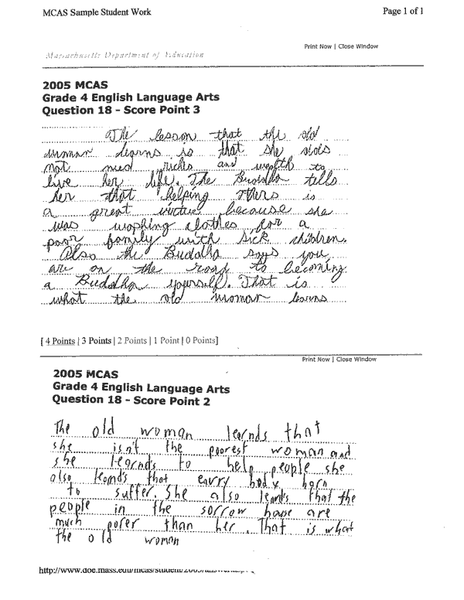 MCAS Sample Student Work
Page 1 of 1
Print Now | Close Window
Massachusetts Department of Education
2005 MCAS
Grade 4 English Language Arts
Question 18 - Score Point 3
The lesson that the old
woman learns is that she dols
not need riches and wealth to
live her life. The Buddha tells
her that helping others is
a great virtue because she
was woshing clothes for a
poor family with sick children.
Also the Buddha says you
are on the road to becoming
a Buddha yourself. That is
what the old woman learns
[ 4 Points | 3 Points | 2 Points | 1 Point | 0 Points]
Print Now | Close Window
2005 MCAS
Grade 4 English Language Arts
Question 18 - Score Point 2
The old woman learnds that
she isn't the poorest woman and
she learnds to help people she
also learnds that evrry body
to suffer. She also learnds that the
people in the sorrow are
much porer than her. That is what
the old woman
http://www.doe.mass.edu/mcas/student/2005/